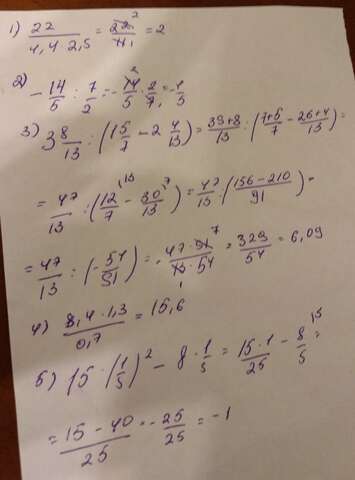 1) 22 / 4,4 · 2,5 = 22² / 11 = 2
2) - 14/5 : 7/2 = - 14²/5 · 2/7₁ = - 1/5
3) 3 8/13 : (15/7 - 2 4/13) = 39+8/13 : (7+5/7 - 26+4/13) =
= 47/13 : (12/7 ¹³ - 30/13 ⁷) = 47/13 : (156-210/91) =
= 47/13 : (- 54/91) = - 47 · 91⁷ / 13₁ · 54 = 329/54 = 6,09
4) 8,4 · 1,3 / 0,7 = 15,6
5) 15 · (1/5)² - 8 · 1/5 = 15 · 1/25 - 8/5 ¹⁵ =
= 15 - 40/25 = - 25/25 = - 1